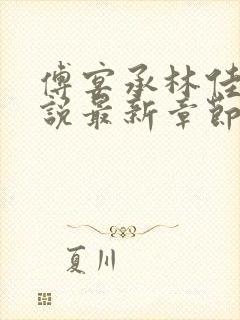 傅宴承林佳
說最新章節
夏川